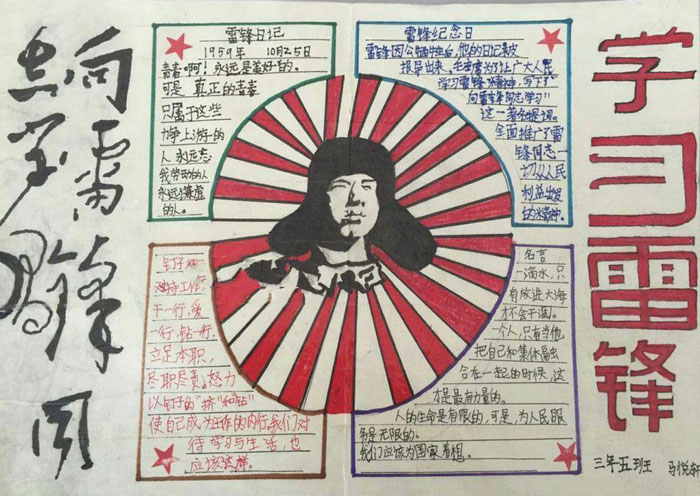 向雷锋同
志学习
雷锋日记
1959年 10月25日
青春啊！永远是美好的。
可是 真正的青春
只属于这些
力争上游的
人 永远忘
我劳动的人
永远谦虚
的人。
雷锋纪念日
雷锋因公牺牲后，他的日记被
报导出来，毛主席为了让广大人民
学习雷锋精神，写下了
"向雷锋同志学习"
这一著名题词。
全面推广了雷
锋同志一
切从人民
利益出发
的精神。
钉子
对待工作，
干一行，爱
一行，钻一行，
立足本职，
尽职尽责，努力
以钉子的"挤"和"钻"
使自己成为工作的内行，我们对
待学习与生活，也
应该这样。
名言
一滴水，只
有放进大海
才不会干涸。
一个人，只有当他
把自己和集体
合在一起的时候，这
才是最有力量的。
人的生命是有限的，可是，为人民服
务是无限的。
我们应该为国家着想。
学习雷锋
三年五班 马悦轩